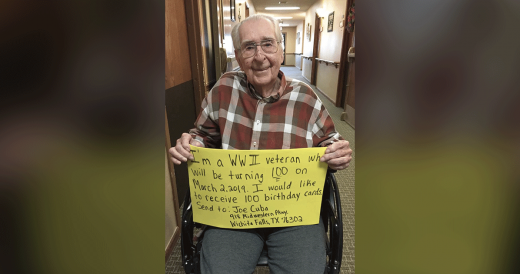 I'm a WWII veteran who
will be turning 100 on
March 2, 2019. I would like
to receive 100 birthday cards
Send to: Joe Cuba
Midwestern Pkwy.
Wichita Falls, TX 76302